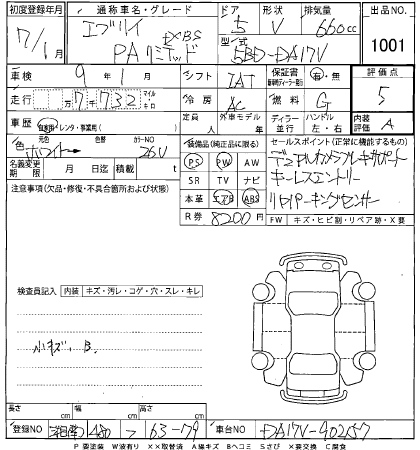 初度登録年月 通称車名・グレード ドア 形状 排気量 出品NO.
7/1 エブリイ 5 V 660cc 1001
PAリミテッド 型式 5BD-DA17V
車検 9年1月 シフト IAT 保証書 有・無 評価点
走行 7千732 マイル・キロ 冷房 AC 燃料 G 5
車歴 自家用・レンタ・事業用( ) 定員 人 外車モデル ディーラー 並行 ハンドル 左・右 内装評価 A
色 元色 ホワイト カラーNO 26U 装備品(純正品に限る) セールスポイント(正常に機能するもの)
名義変更期限 月 日迄 積載 t PS PW AW デュアルカメラブレーキサポート
注意事項(欠品・修復・不具合箇所および状態) SR TV ナビ キーレスエントリー
本革 エアB ABS リヤパーキングセンサー
R券 8200円 FW キズ・ヒビ割・リペア跡・X要
検査員記入 内装 キズ・汚レ・コゲ・穴・スレ・キレ
小キズ、B
長さ cm 幅 cm 高さ cm
登録NO 480 63-79 車台NO DA17V-902157
P 要塗装 W波有り ××取替済 A線キズ Bヘコミ Sさび X要交換 C腐食